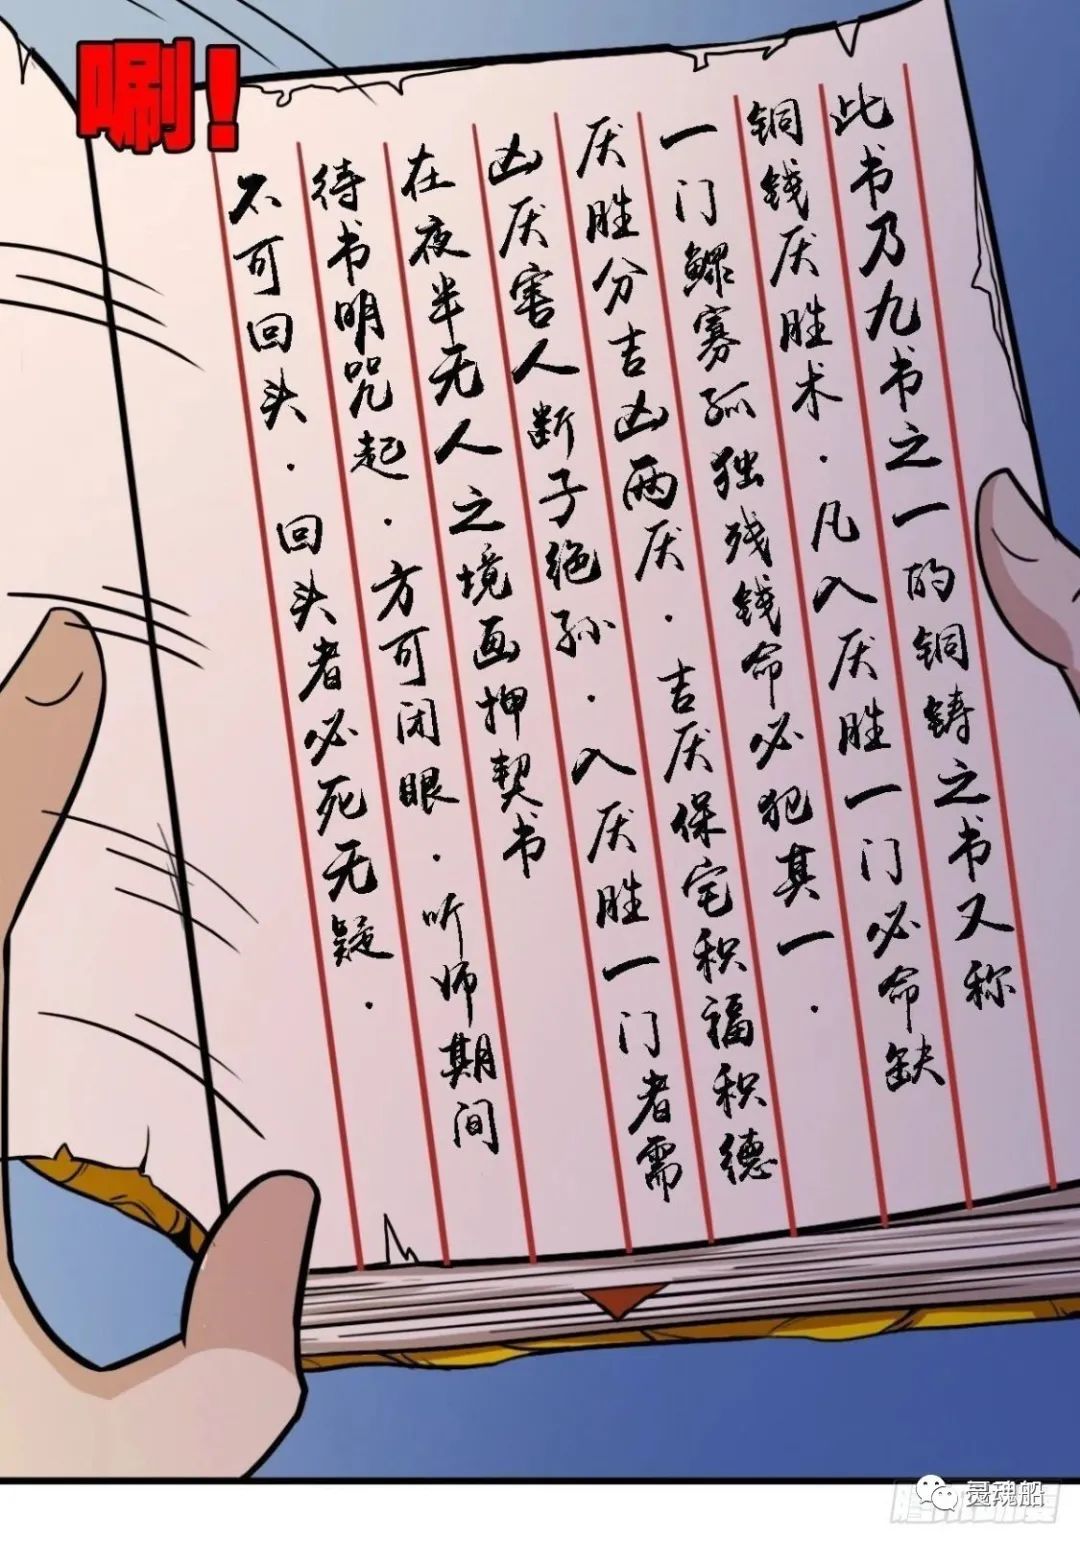 唰！
此书乃九书之一的铜铸之书又称
铜钱厌胜术．凡入厌胜一门必命缺
一门鳏寡孤独残钱命必犯其一．
厌胜分吉凶两厌．吉厌保宅积福积德
凶厌害人断子绝孙．入厌胜一门者需
在夜半无人之境画押契书
待书明咒起．方可闭眼．听师期间
不可回头．回头者必死无疑．
灵魂船